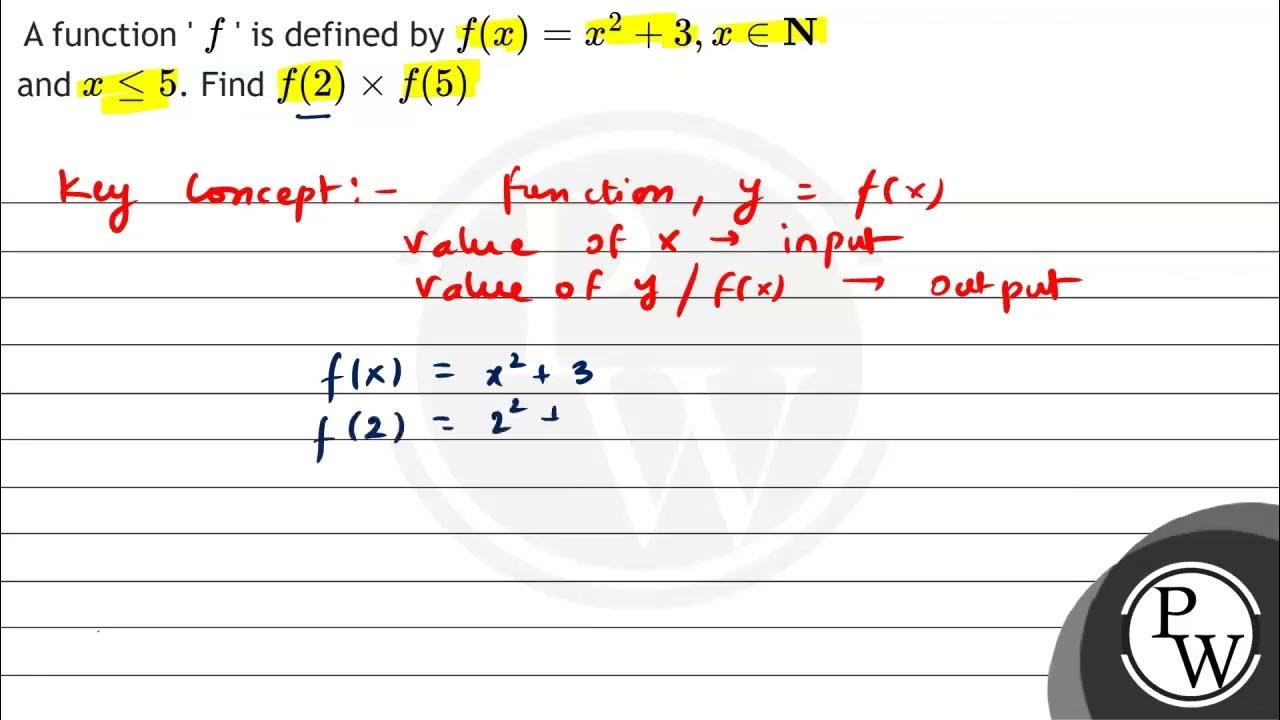 A function ' f ' is defined by f(x) = x² + 3, x ∈ N
and x ≤ 5. Find f(2) × f(5)
Key Concept:- function, y = f(x)
value of x → input
value of y / f(x) → output
f(x) = x² + 3
f(2) = 2² +
PW
PW